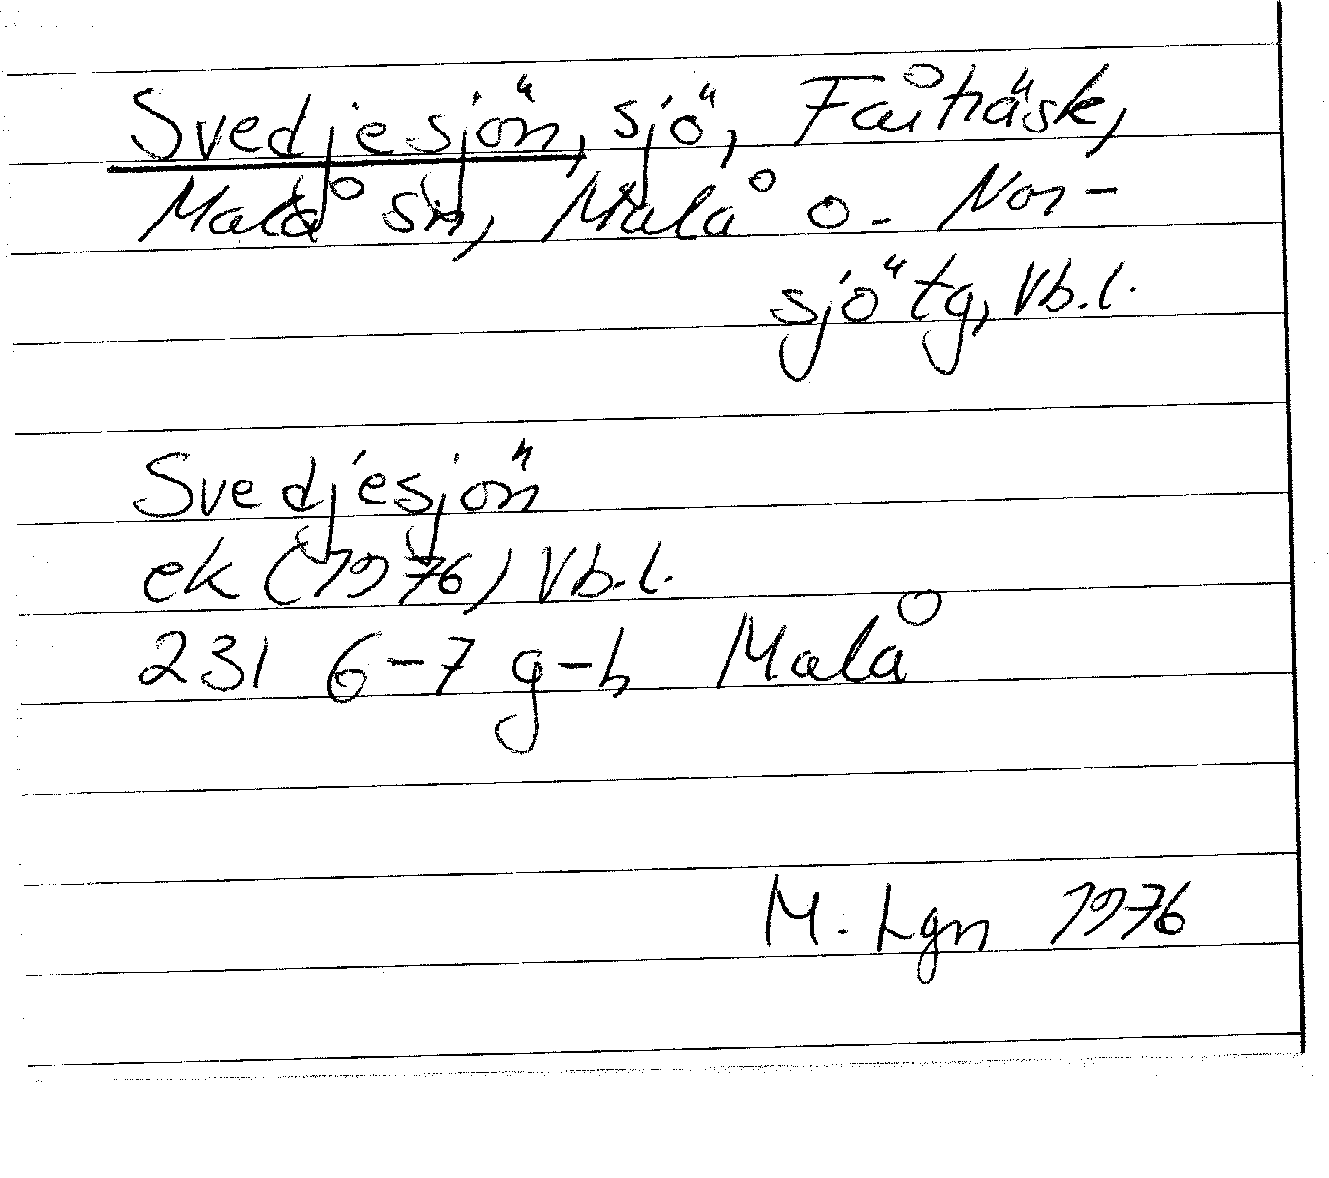 Svedjesjön, sjö, Fårträsk,
Malå sn, Malå o. Nor-
sjö tg, Vb.l.
Svedjesjön
ek (1976) Vb.l.
231 6-7 g-h Malå
M. Lgn 1976